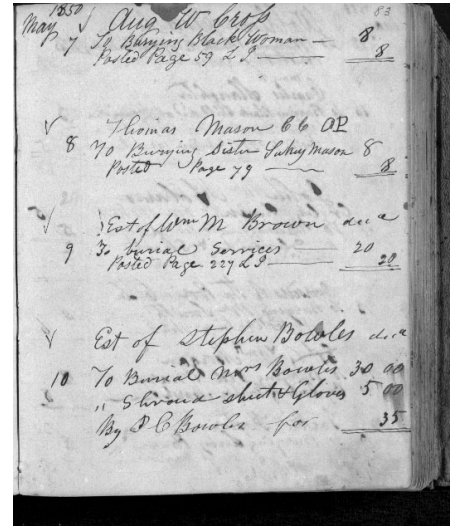 1850
83
May
√ Aug W Cross
7 To Burying Black Woman — 8
Posted Page 59 L P — 8
√ Thomas Mason
8 To Burying Sister Sukey Mason 8
Posted Page 79 — 8
√ Est of Wm M Brown decd
9 To burial Services 20
Posted Page 227 L P — 20
√ Est of Stephen Bowles decd
10 To Burial Mrs Bowles 30 00
„ Shroud sheet & Gloves 5 00
By P C Bowles for 35